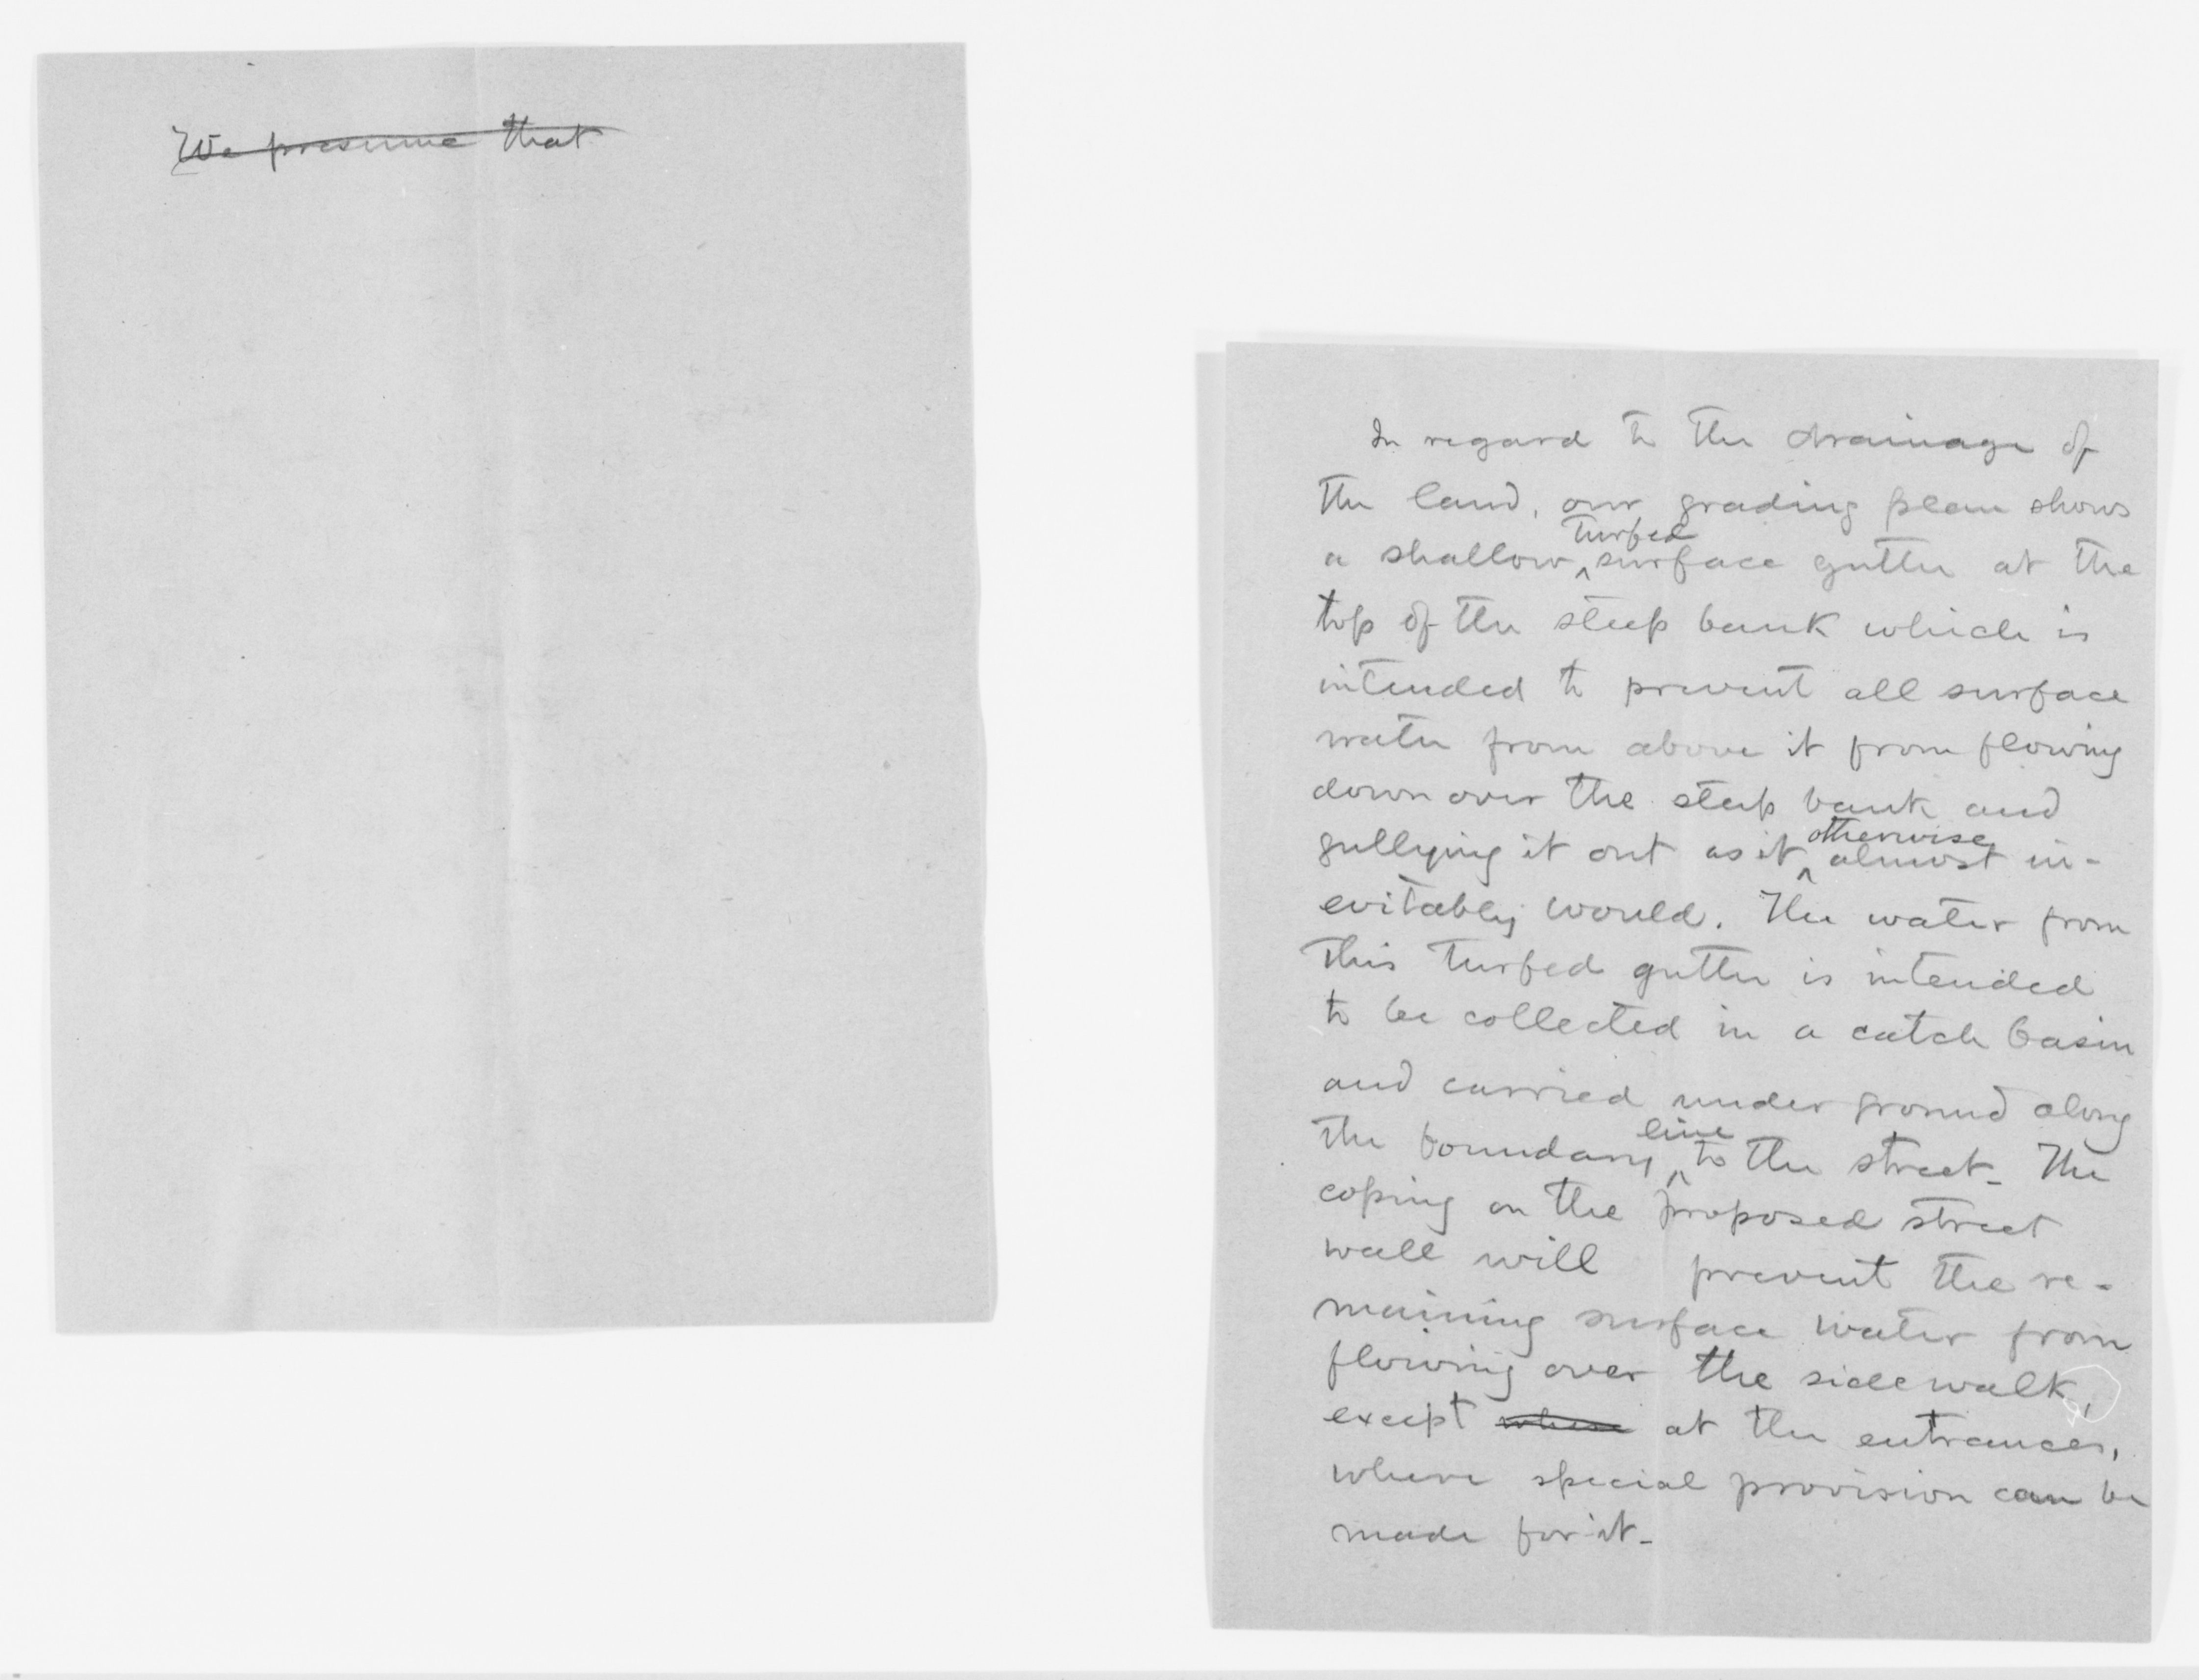 We presume that
In regard to the drainage of
the land, our grading plan shows
turfed
a shallow ^ surface gutter at the
top of the steep bank which is
intended to prevent all surface
water from above it from flowing
down over the steep bank and
otherwise
gullying it out as it ^ almost in-
evitably would. The water from
this turfed gutter is intended
to be collected in a catch basin
and carried under ground along
line
the boundary ^ to the street. The
coping on the proposed street
wall will prevent the re-
maining surface water from
flowing over the sidewalk,
except where at the entrances,
where special provision can be
made for it.